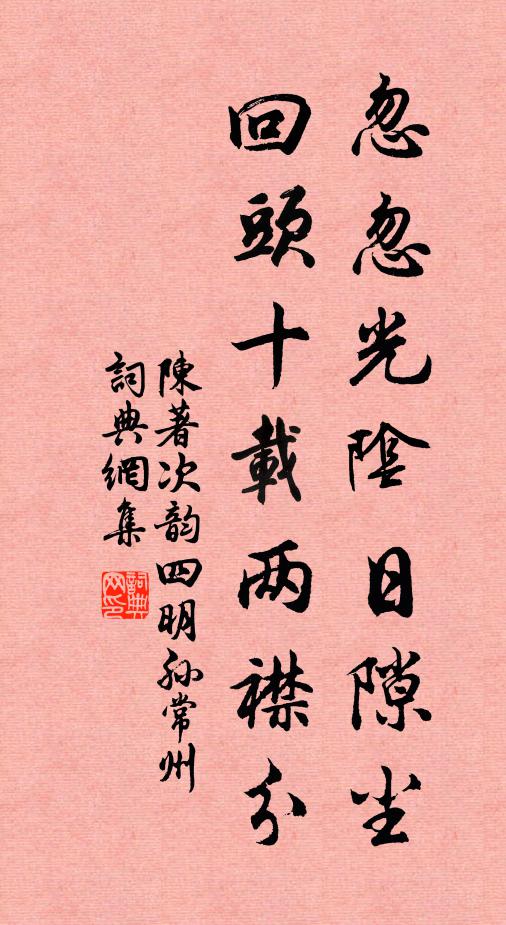 忽忽光陰日隙尘
回頭十載两襟分
陳著次韵四明孙常州
詞典網集
詞典网印